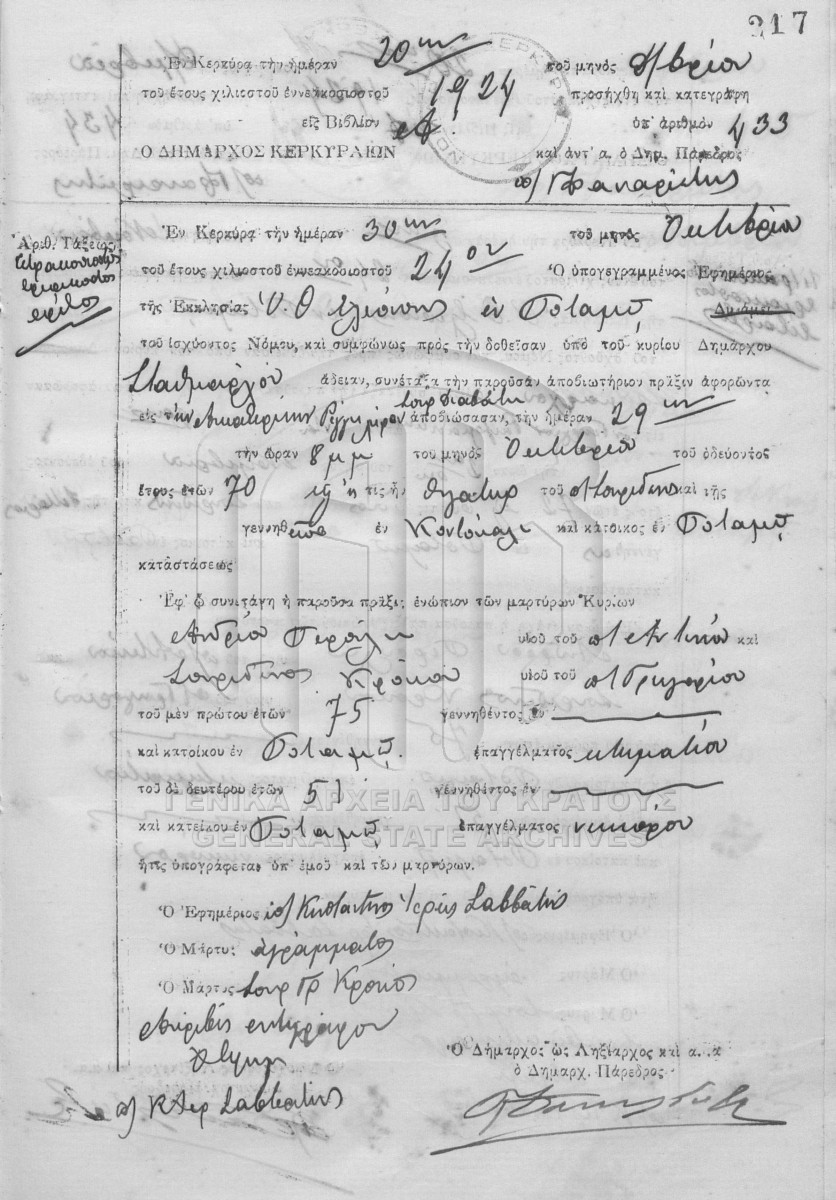 217
Ἐν Κερκύρᾳ τὴν ἡμέραν 20ην τοῦ μηνὸς 9βρίου
τοῦ ἔτους χιλιοστοῦ ἐννεακοσιοστοῦ 1924 προσήχθη καὶ κατεγράφη
εἰς Βιβλίον Α ὑπ' ἀριθμὸν 433
Ο ΔΗΜΑΡΧΟΣ ΚΕΡΚΥΡΑΙΩΝ καὶ ἀντ' α. ὁ Δημ. Πάρεδρος
Ἀριθ. Τάξεως
τετρακοσιοστὸς
τριακοστὸς
τρίτος
Ἐν Κερκύρᾳ τὴν ἡμέραν 30ην τοῦ μηνὸς Ὀκτωβρίου
τοῦ ἔτους χιλιοστοῦ ἐννεακοσιοστοῦ 24ου Ὁ ὑπογεγραμμένος Ἐφημέριος
τῆς Ἐκκλησίας Υ. Θ Ἐλεούσης ἐν Ποταμῷ Δυνάμει
τοῦ ἰσχύοντος Νόμου, καὶ συμφώνως πρὸς τὴν δοθεῖσαν ὑπὸ τοῦ κυρίου Δημάρχου
Σταθμάρχου ἄδειαν, συνέταξα τὴν παροῦσαν ἀποβιωτήριον πρᾶξιν ἀφορῶντα
εἰς τὴν Αἰκατερίνην ἀποβιώσασαν, τὴν ἡμέραν 29ην
τὴν ὥραν 8 μμ τοῦ μηνὸς Ὀκτωβρίου τοῦ ὁδεύοντος
ἔτους ἐτῶν 70 τις ἦν θυγάτηρ τοῦ π Σπυρίδωνος καὶ τῆς
γεννηθεῖσα ἐν Κοντόκαλι καὶ κάτοικος ἐν Ποταμῷ
καταστάσεως
Ἐφ' ᾧ συνετάγη ἡ παροῦσα πρᾶξις ἐνώπιον τῶν μαρτύρων Κυρίων
Ἀνδρέα υἱοῦ τοῦ π Ἀντωνίου καὶ
Σπυρίδωνος Κρόκου υἱοῦ τοῦ π Γρηγορίου
τοῦ μὲν πρώτου ἐτῶν 75 γεννηθέντος ἐν
καὶ κατοίκου ἐν Ποταμῷ ἐπαγγέλματος κτηματίου
τοῦ δὲ δευτέρου ἐτῶν 51 γεννηθέντος ἐν
ΓΕΝΙΚΑ ΑΡΧΕΙΑ ΤΟΥ ΚΡΑΤΟΥΣ
καὶ κατοίκου ἐν Ποταμῷ ἐπαγγέλματος νεωκόρου
GENERAL STATE ARCHIVES
ἥτις ὑπογράφεται ὑπ' ἐμοῦ καὶ τῶν μαρτύρων.
Ὁ Ἐφημέριος Κωνσταντῖνος Ἱερεὺς Σαββάνης
Ὁ Μάρτυς ἀγράμματος
Ὁ Μάρτυς Σπυρ Γρ Κρόκος
Ἀκριβὲς ἀντίγραφον
Ὁ Δήμαρχος ὡς Ληξίαρχος καὶ α. α
ὁ Δημαρχ. Πάρεδρος